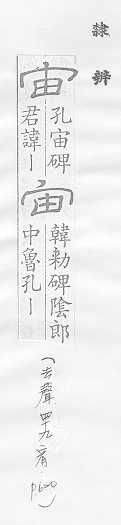 隸辨
宙 孔宙碑
君諱ㄧ
宙 韓勑碑陰郎
中魯孔ㄧ
(去聲 四十九宥 P600)